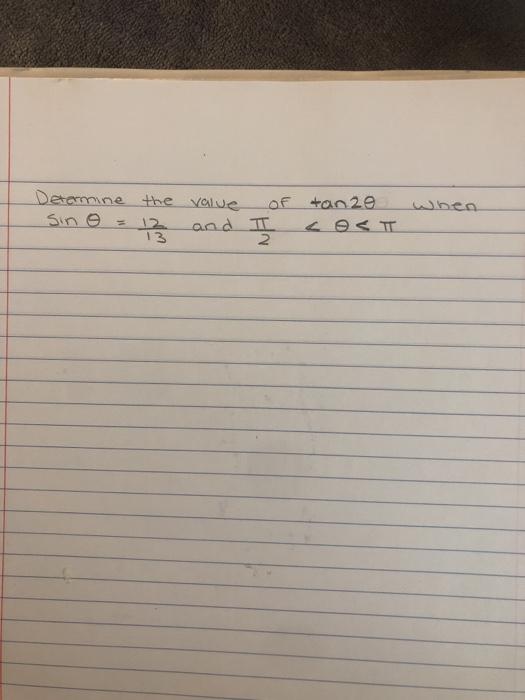 Determine the value of tan2θ when
sin θ = 12/13 and π/2 < θ < π